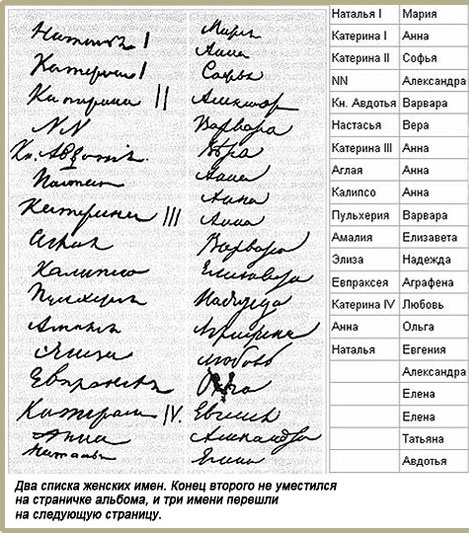 Наталья I
Катерина I
Катерина II
NN
Кн. Авдотья
Настасья
Катерина III
Аглая
Калипсо
Пульхерия
Амалия
Элиза
Евпраксея
Катерина IV.
Анна
Наталья
Мария
Анна
Софья
Александра
Варвара
Вера
Анна
Анна
Анна
Варвара
Елизавета
Надежда
Аграфена
Любовь
Ольга
Евгения
Александра
Елена
Наталья I Мария
Катерина I Анна
Катерина II Софья
NN Александра
Кн. Авдотья Варвара
Настасья Вера
Катерина III Анна
Аглая Анна
Калипсо Анна
Пульхерия Варвара
Амалия Елизавета
Элиза Надежда
Евпраксея Аграфена
Катерина IV Любовь
Анна Ольга
Наталья Евгения
Александра
Елена
Елена
Татьяна
Авдотья
Два списка женских имен. Конец второго не уместился
на страничке альбома, и три имени перешли
на следующую страницу.